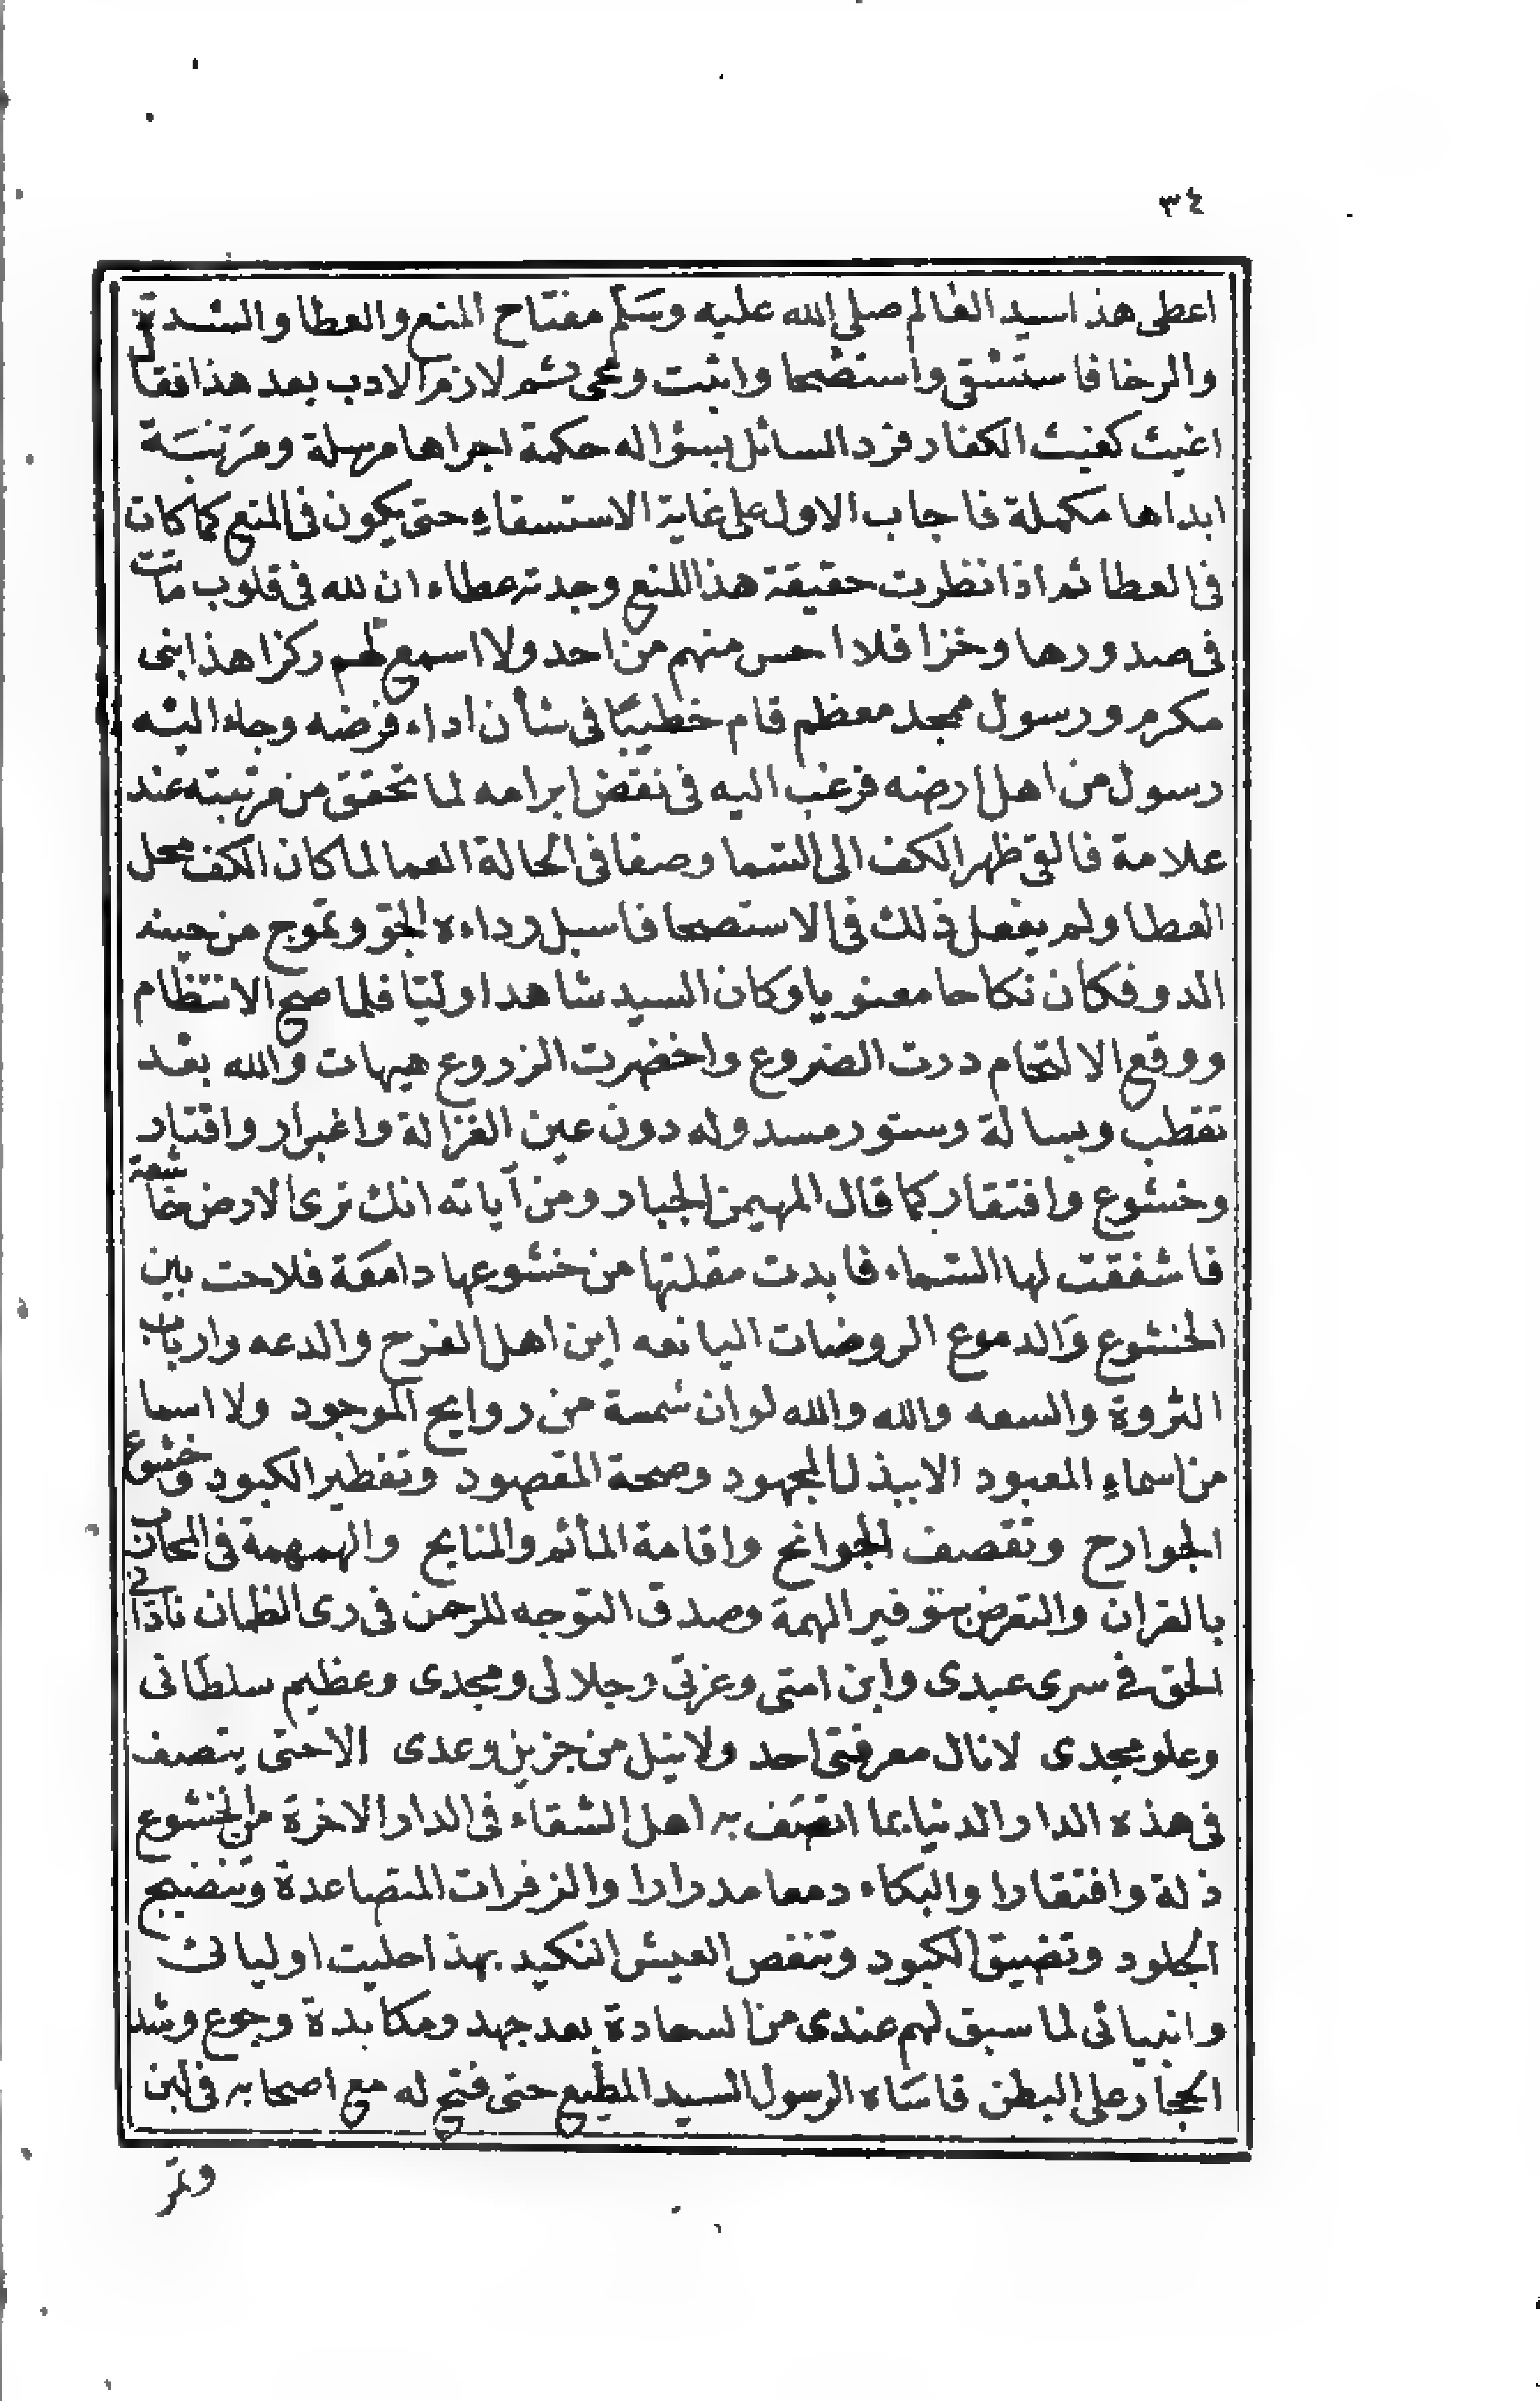 ٣٤
اعطى هذا سيد العالم صلى الله عليه وسلم مفتاح المنع والعطا والشدة
والرخا فاستسقى واستضحا واثبت ومحى ثم لازم الادب بعد هذا فقال
اغيث كغيث الكفار فرد السائل بسؤاله حكمة اجراها مرسلة ومرتبة
ابداها مكملة فاجاب الاول على غاية الاستسقاء حتى يكون فى المنع كما كان
فى العطا ثم اذا نظرت حقيقة هذا المنع وجدته عطاء ان لله فى قلوب ماتت
فى صدورها وخزا فلا احس منهم من احد ولا اسمع لهم ركزا هذا بنى
مكرم ورسول ممجد معظم قام خطيبا فى شأن اداء فرضه وجاء اليه
رسول من اهل ارضه فرغب اليه فى نقض ابرامه لما تحقق من مرتبته عند
علامة فالقى ظهر الكف الى السما وصفا فى الحالة العما لما كان الكف محل
العطا ولم يفعل ذلك فى الاستصحا فاسبل رداءه الحق وتموج من حينه
الدو فكان نكاحا معنويا وكان السيد شاهدا وليا فلما صح الانتظام
ووقع الالتحام درت الضروع واخضرت الزروع هيهات والله بعد
تقطب وبسالة وستور مسدوله دون عين الغزالة واغبرار واقتار
وخشوع وافتقار كما قال المهيمن الجبار ومن آياته انك ترى الارض خاشعة
فاشفقت لها السماء فابدت مقلتها من خشوعها دامعة فلاحت بين
الخشوع والدموع الروضات اليانعه اين اهل الفرح والدعه وارباب
الثروة والسعه والله والله لو ان شمسة من روايح الموجود ولا اسما
من اسماء المعبود الا ببذل المجهود وصحة المقصود وتفطير الكبود وخشوع
الجوارح وتقصف الجوانح واقامة المأثم والمنايح والهمهمة فى المحارب
بالقران والتعرض بتوفير الهمة وصدق التوجه للرحمن فى رى الظمان نادانى
الحق فى سرى عبدى وابن امتى وعزتى وجلالى ومجدى وعظيم سلطانى
وعلو مجدى لا نال معرفتى احد ولا ينل من جزيل وعدى الا حتى يتصف
فى هذه الدار الدنيا بما اتصف به اهل الشقاء فى الدار الاخرة من الخشوع
ذلة وافتقارا والبكاء دمعا مدرارا والزفرات المتصاعدة وتنضيج
الجلود وتضييق الكبود وتنغص العيش النكيد بهذا حليت اوليائى
وانبيائى لما سبق لهم عندى من السعادة بعد جهد ومكابدة وجوع وشد
الحجار على البطن قاساه الرسول السيد المطيع حتى فتح له مع اصحابه فى لبن
وتمر